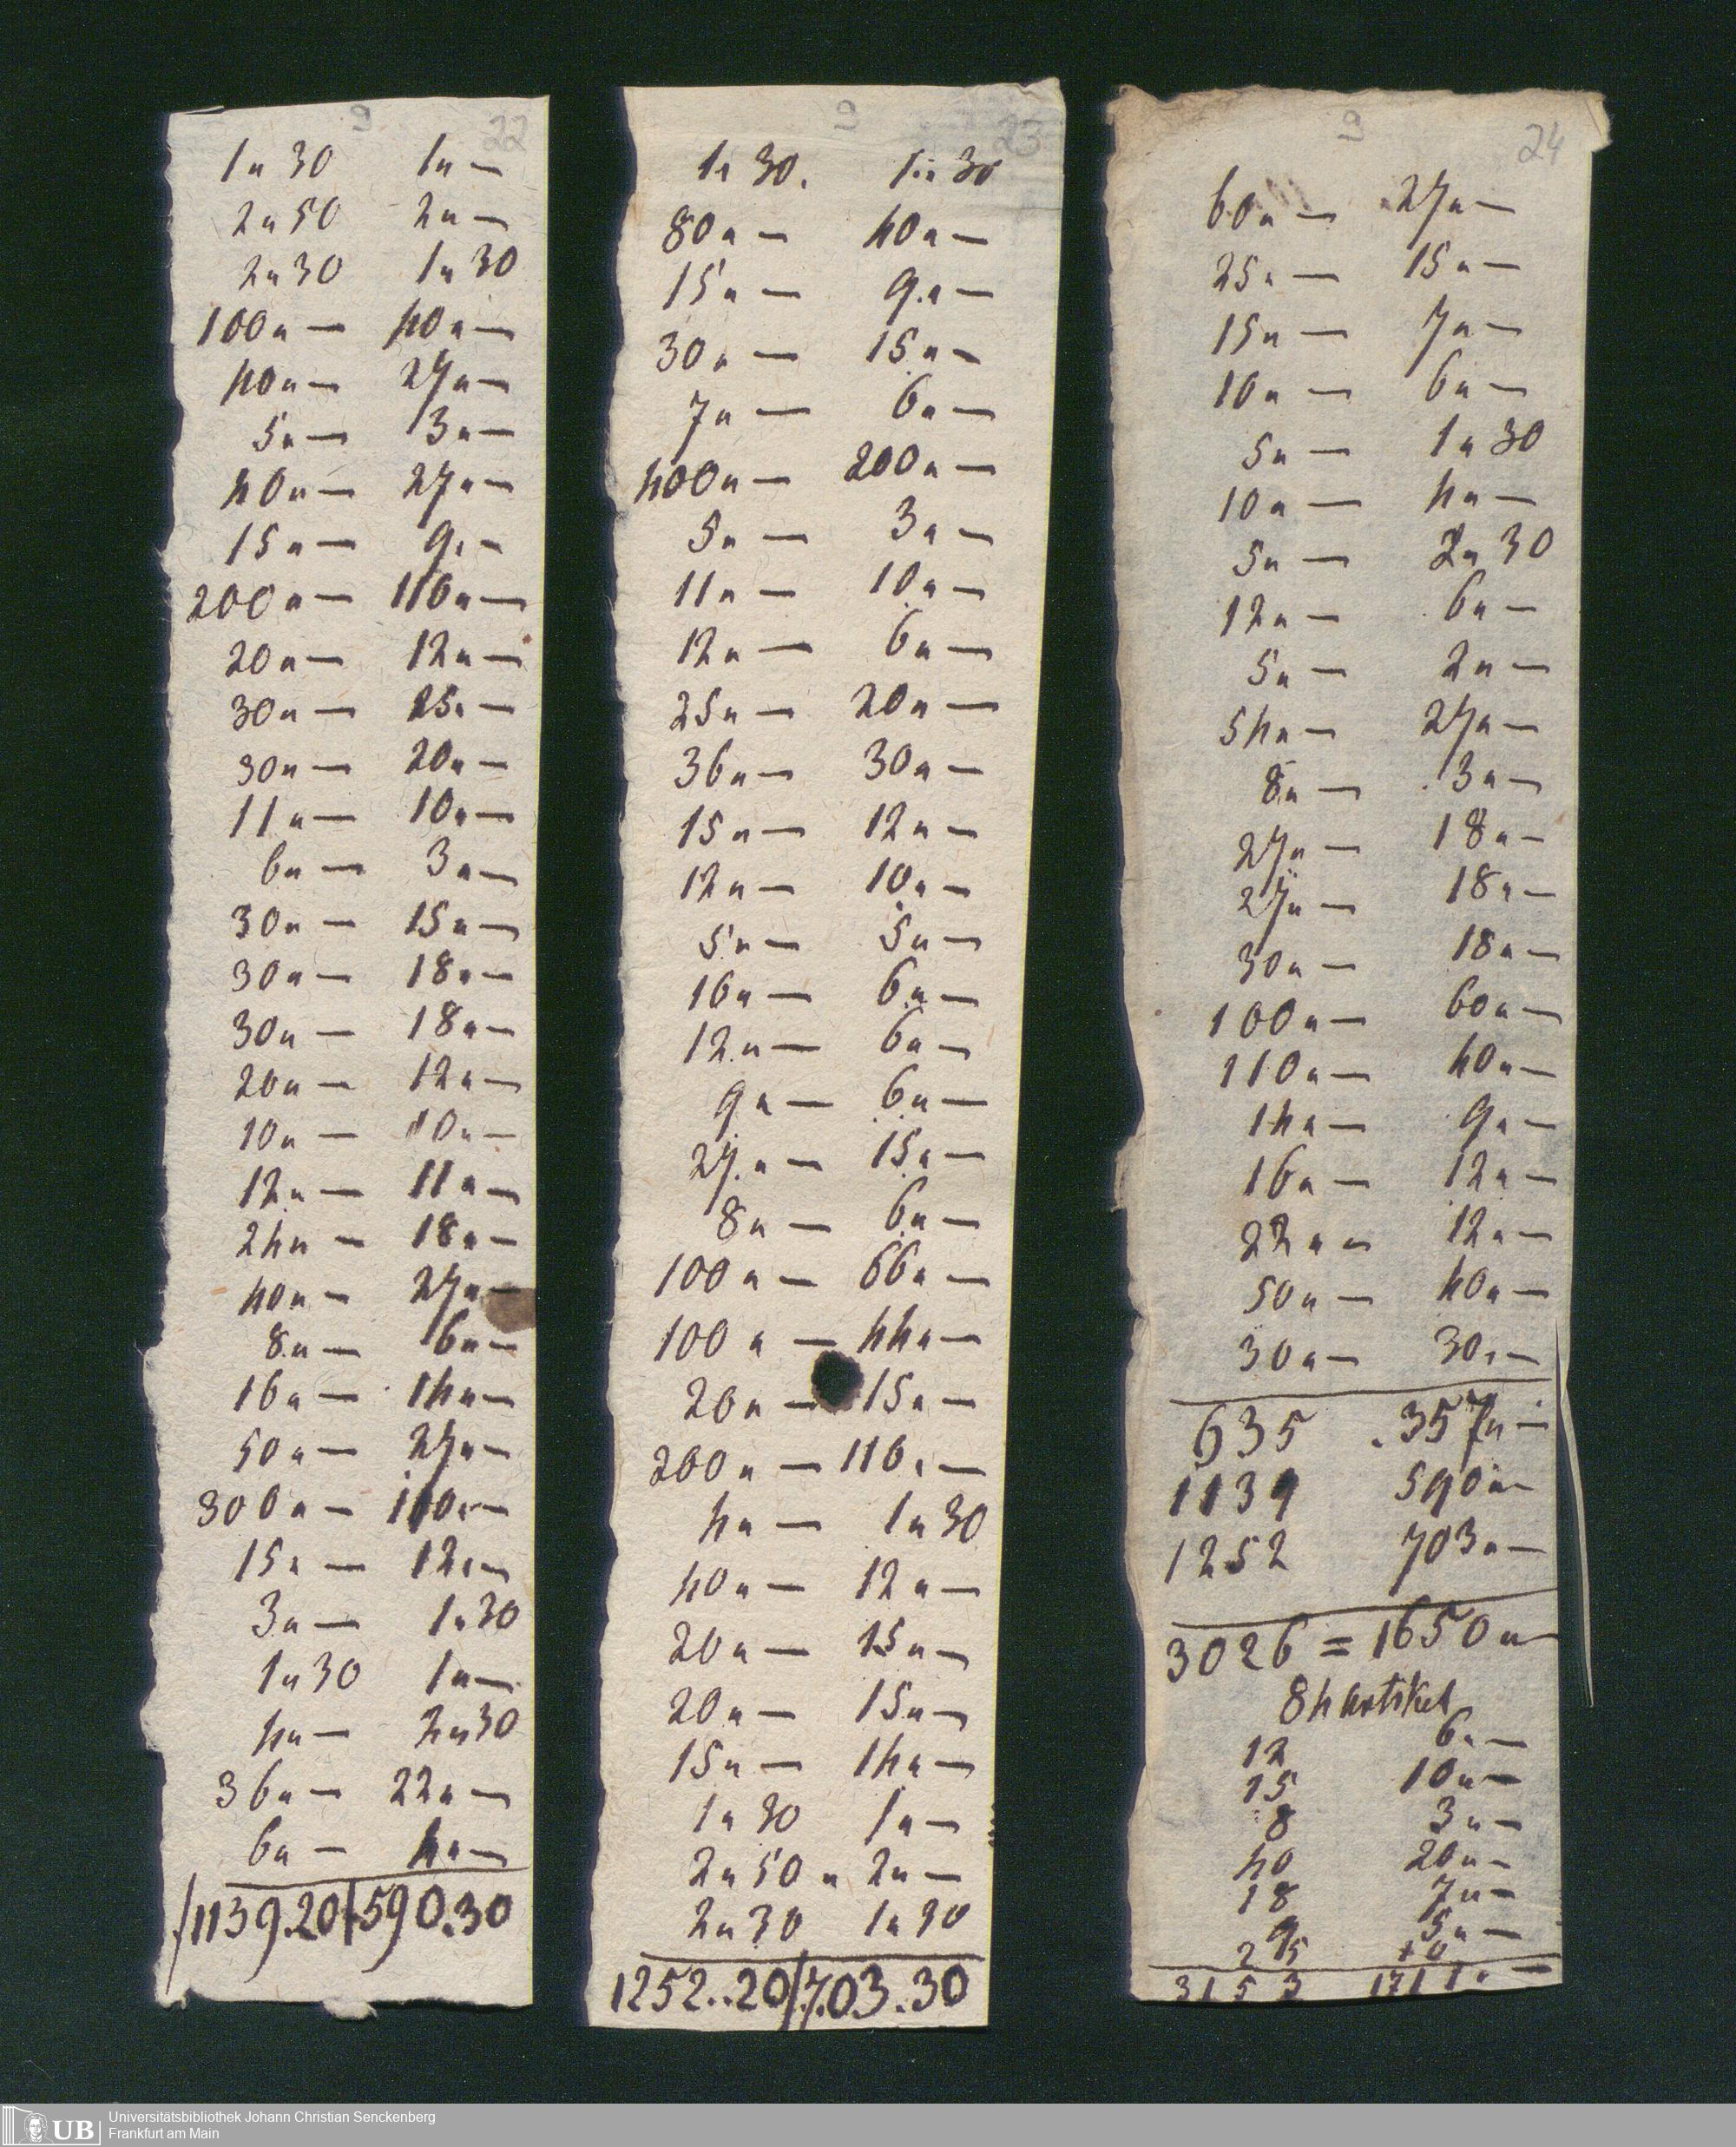 9 22
1 " 30 1 " —
2 " 50 2 " —
2 " 30 1 " 30
100 " — 40 " —
40 " — 27 " —
5 " — 3 " —
40 " — 27 " —
15 " — 9 " —
200 " — 110 " —
20 " — 12 " —
30 " — 25 " —
30 " — 20 " —
11 " — 10 " —
6 " — 3 " —
30 " — 15 " —
30 " — 18 " —
30 " — 18 " —
20 " — 12 " —
10 " — 10 " —
12 " — 11 " —
24 " — 18 " —
40 " — 27 " —
8 " — 6 " —
16 " — 14 " —
50 " — 27 " —
300 " — 100 " —
15 " — 12 " —
3 " — 1 " 30
1 " 30 1 " —
4 " — 2 " 30
36 " — 22 " —
6 " — 4 " —
1139.20 590.30
9 23
1 " 30. 1 " 30
80 " — 40 " —
15 " — 9 " —
30 " — 15 " —
7 " — 6 " —
400 " — 200 " —
5 " — 3 " —
11 " — 10 " —
12 " — 6 " —
25 " — 20 " —
36 " — 30 " —
15 " — 12 " —
12 " — 10 " —
5 " — 5 " —
16 " — 6 " —
12 " — 6 " —
9 " — 6 " —
27 " — 15 " —
8 " — 6 " —
100 " — 66 " —
100 " — 44 " —
20 " — 15 " —
200 " — 110 " —
4 " — 1 " 30
40 " — 12 " —
20 " — 15 " —
20 " — 15 " —
15 " — 14 " —
1 " 30 1 " —
2 " 50 " 2 " —
2 " 30 1 " 30
1252..20 703.30
9 24
60 " — 27 " —
25 " — 15 " —
15 " — 7 " —
10 " — 6 " —
5 " — 1 " 30
10 " — 4 " —
5 " — 2 " 30
12 " — 6 " —
5 " — 2 " —
54 " — 27 " —
8 " — 3 " —
27 " — 18 " —
27 " — 18 " —
30 " — 18 " —
100 " — 60 " —
110 " — 40 " —
14 " — 9 " —
16 " — 12 " —
22 " — 12 " —
50 " — 40 " —
30 " — 30 " —
635 357 " —
1139 590 " —
1252 703 " —
3026 = 1650 " —
84 Artikel
12 6 " —
15 10 " —
8 3 " —
40 20 " —
18 7 " —
9 5 " —
25 10
3153 1711 " —
Universitätsbibliothek Johann Christian Senckenberg
Frankfurt am Main
UB